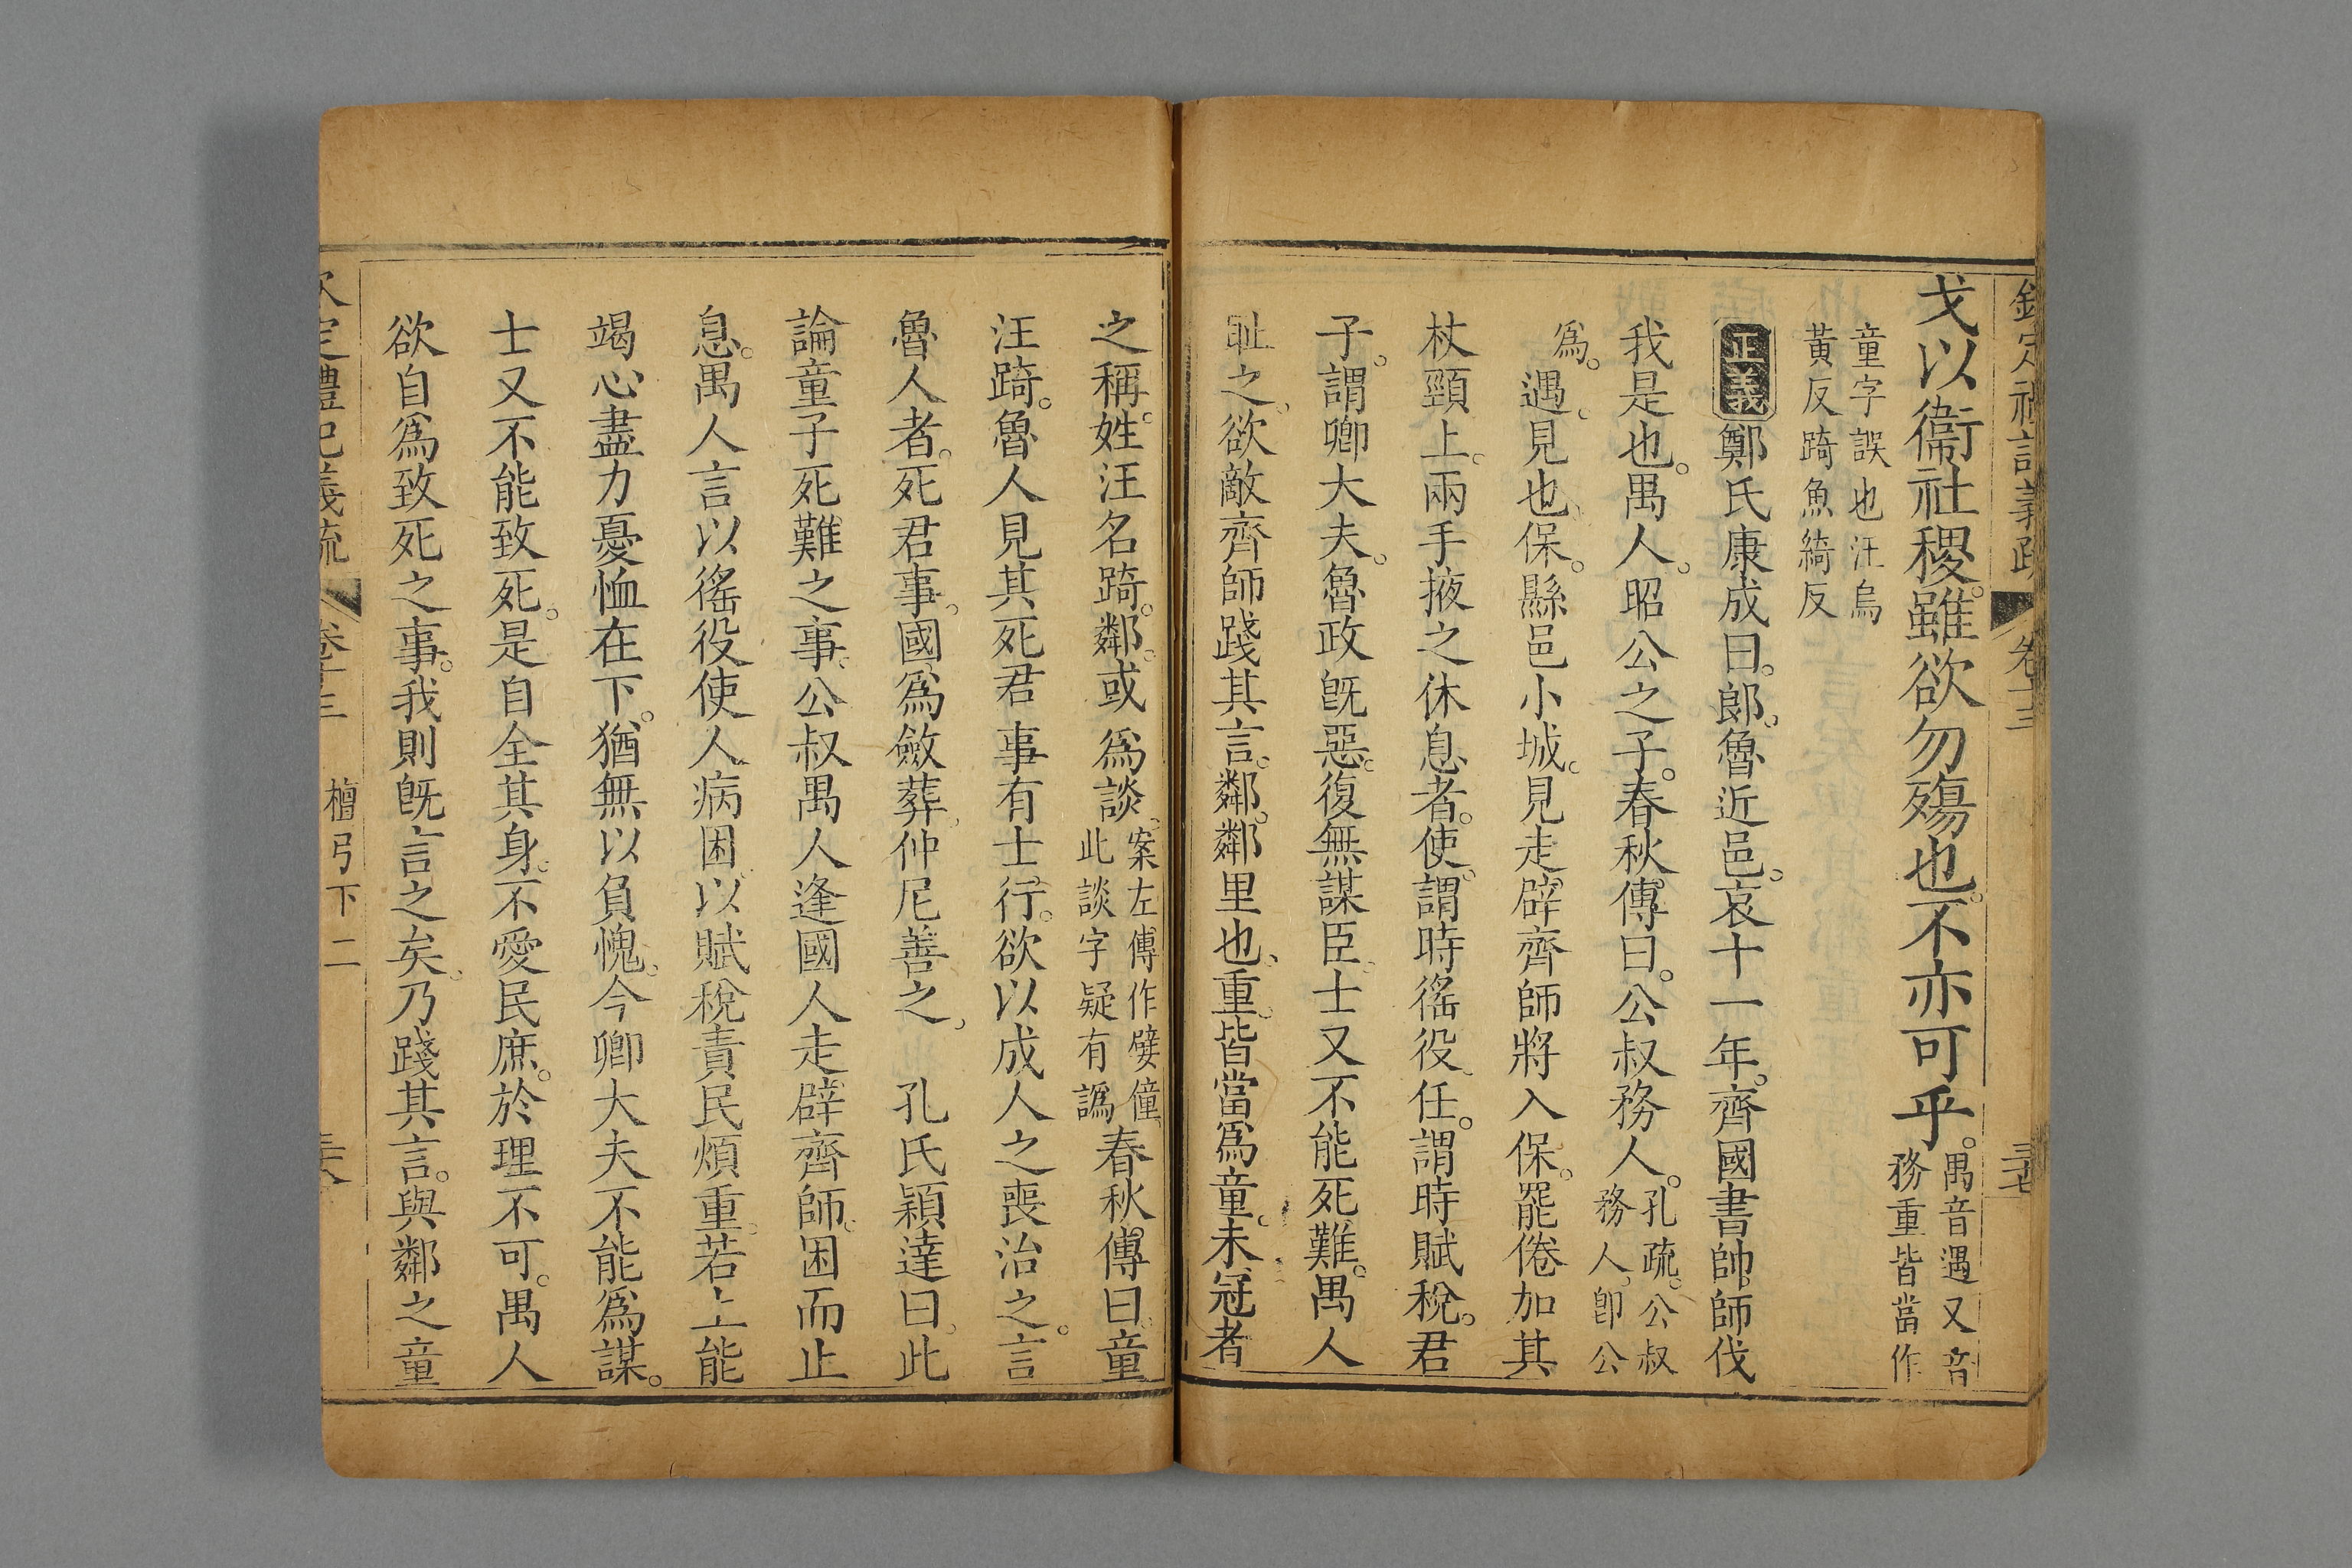 欽定禮記義疏 卷十三 三七
戈以衞社稷。雖欲勿殤也。不亦可乎。禺音遇又音務重皆當作
童字誤也汪烏黃反踦魚綺反
正義 鄭氏康成曰。郎。魯近邑。哀十一年。齊國書帥師伐
我是也。禺人。昭公之子。春秋傳曰。公叔務人。孔疏。公叔務人。卽公
爲。遇。見也。保。縣邑小城。見走辟齊師將入保。罷倦加其
杖頸上。兩手掖之休息者。使。謂時徭役。任。謂時賦稅。君
子。謂卿大夫。魯政旣惡。復無謀臣。士又不能死難。禺人
耻之。欲敵齊師踐其言。鄰。鄰里也。重。皆當爲童。未冠者
之稱。姓汪名踦。鄰。或爲談。案左傳作嬖僮。此談字疑有譌春秋傳曰。童
汪踦。魯人見其死君事有士行。欲以成人之喪治之。言
魯人者。死君事。國爲斂葬。仲尼善之。 孔氏穎達曰。此
論童子死難之事。公叔禺人逢國人走辟齊師。困而止
息。禺人言以徭役使人病困。以賦稅責民煩重。若上能
竭心盡力憂恤在下。猶無以負愧。今卿大夫不能爲謀。
士又不能致死。是自全其身。不愛民庶。於理不可。禺人
欲自爲致死之事。我則旣言之矣。乃踐其言。與鄰之童
欽定禮記義疏 卷十三 檀弓下二 三八